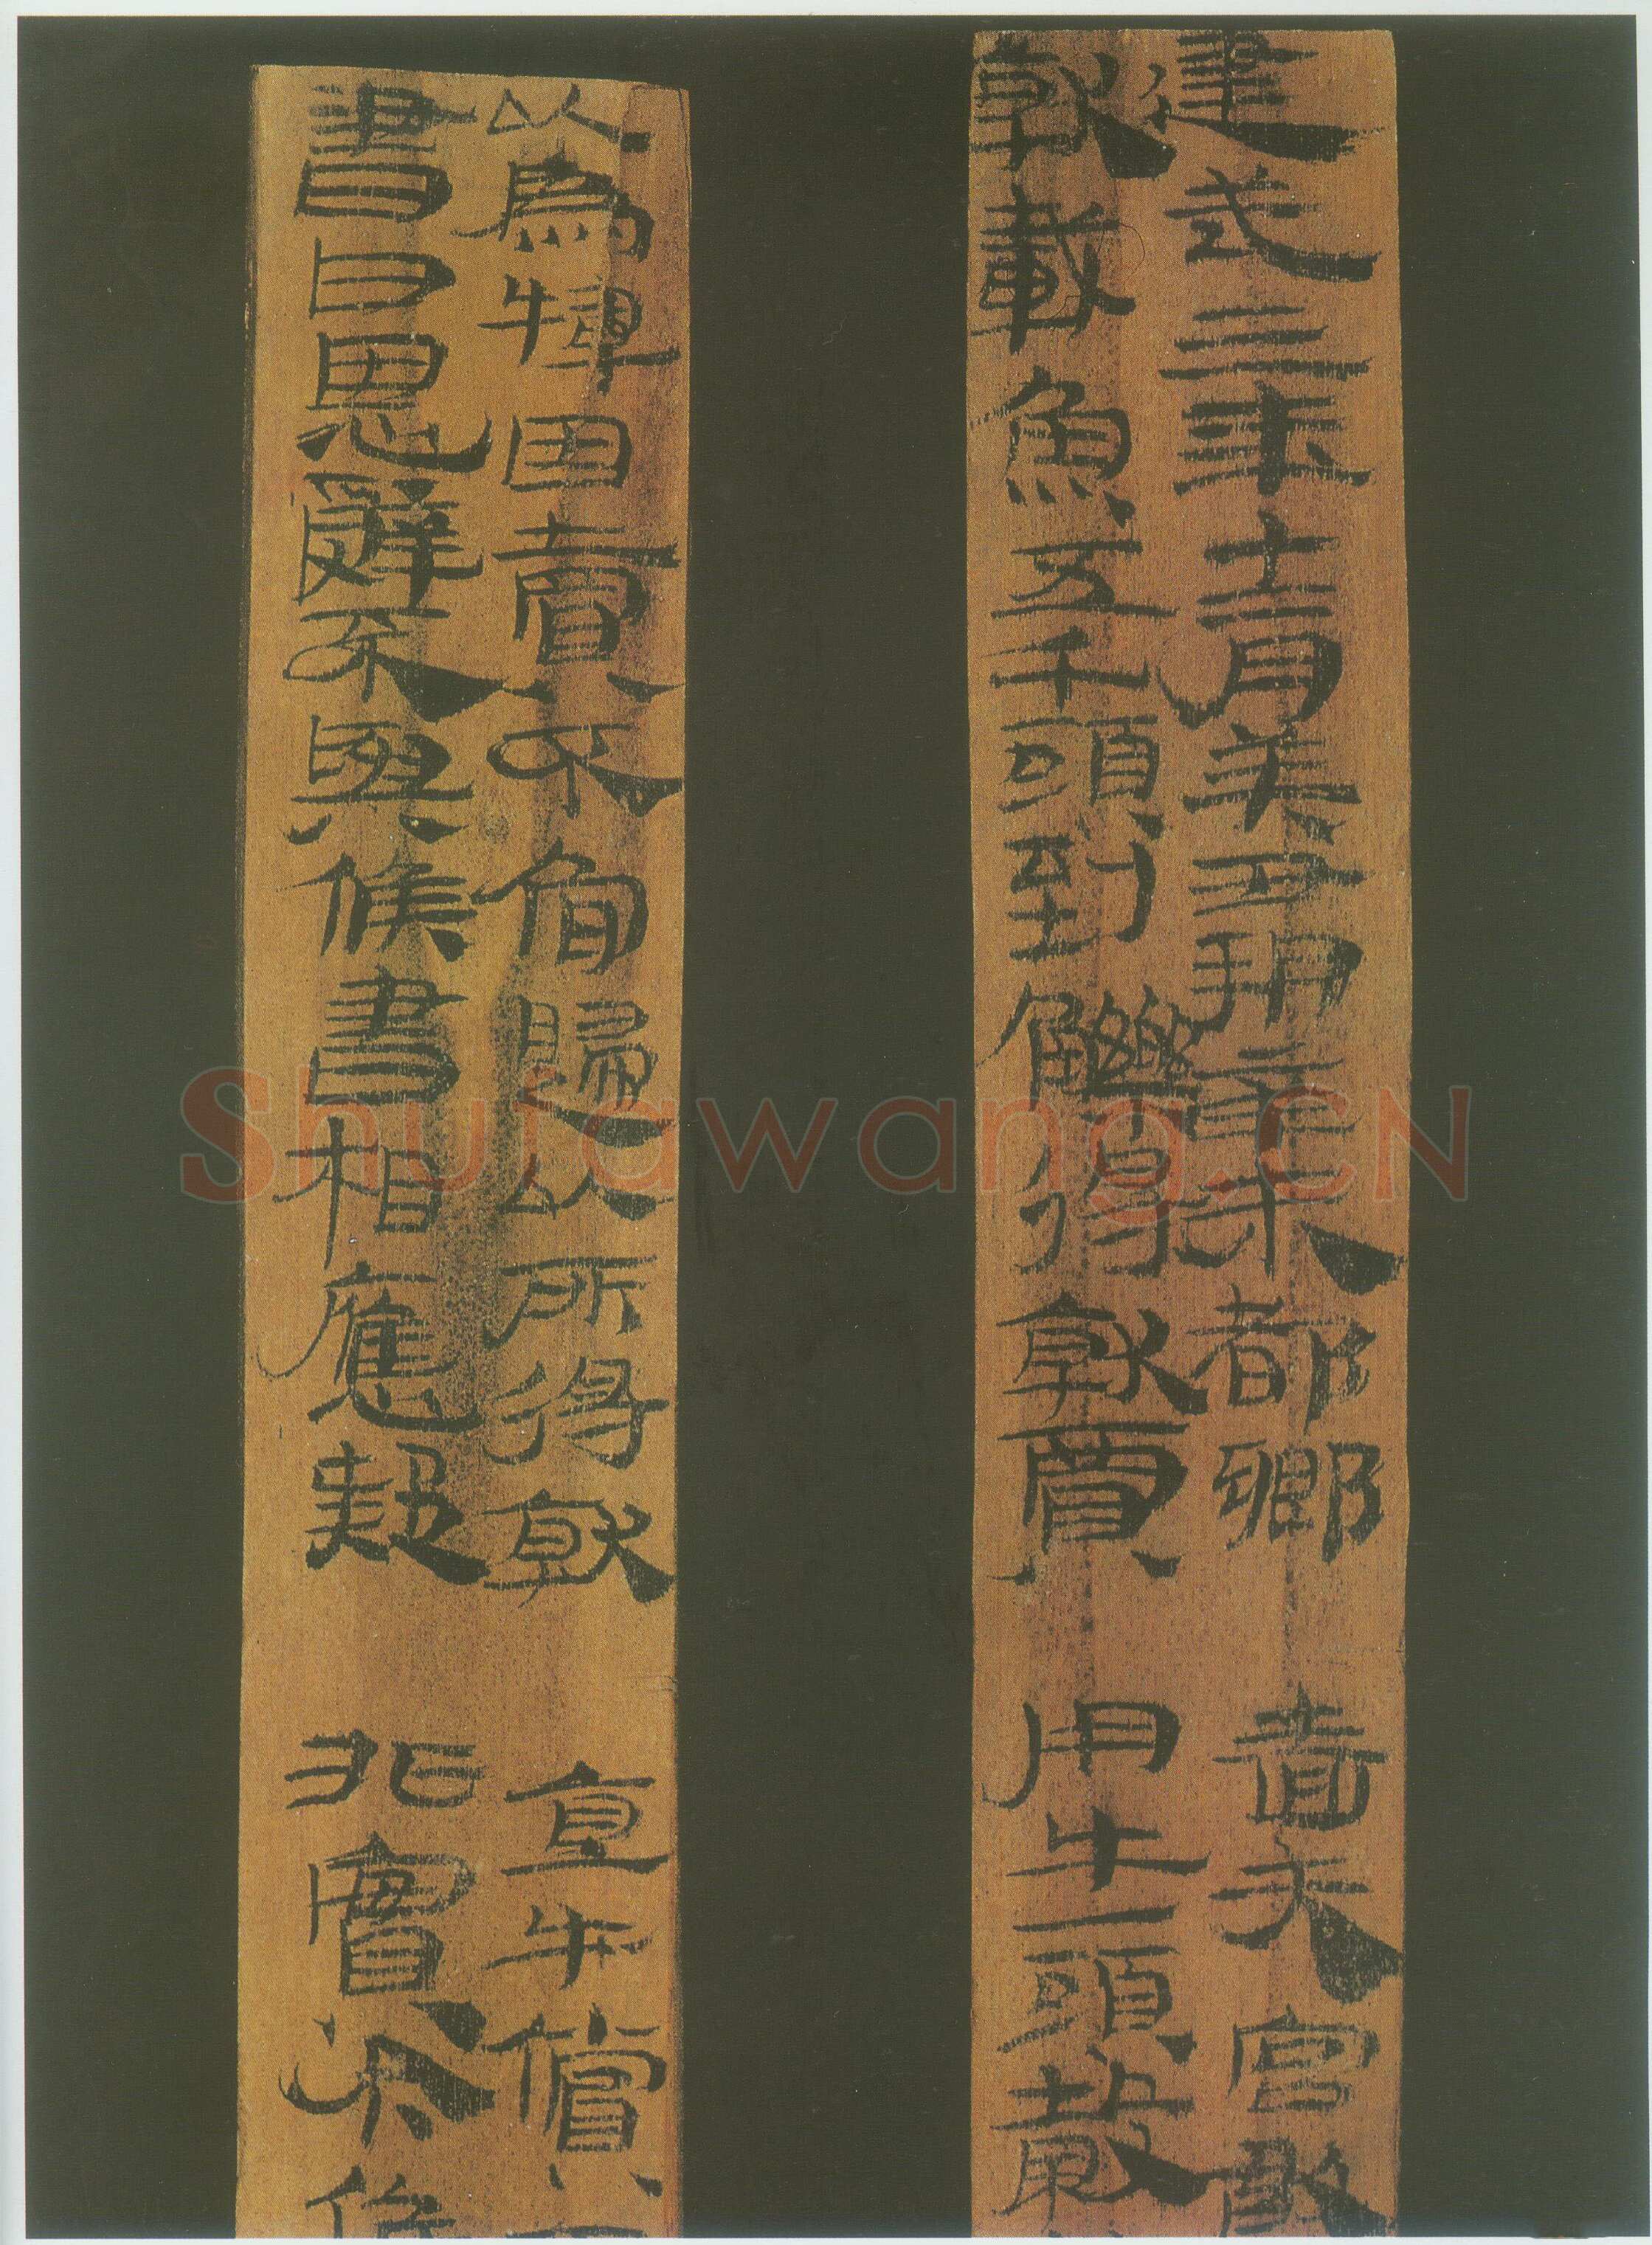 建武三年十二月癸丑朔辛未都鄉嗇夫宮敢
就載魚五千頭到觻得就賈用牛一頭穀
以為犅因賣不肯歸以所得就直牛償
書曰恩辭不與候書相應疑非實今候
Shufawang.CN